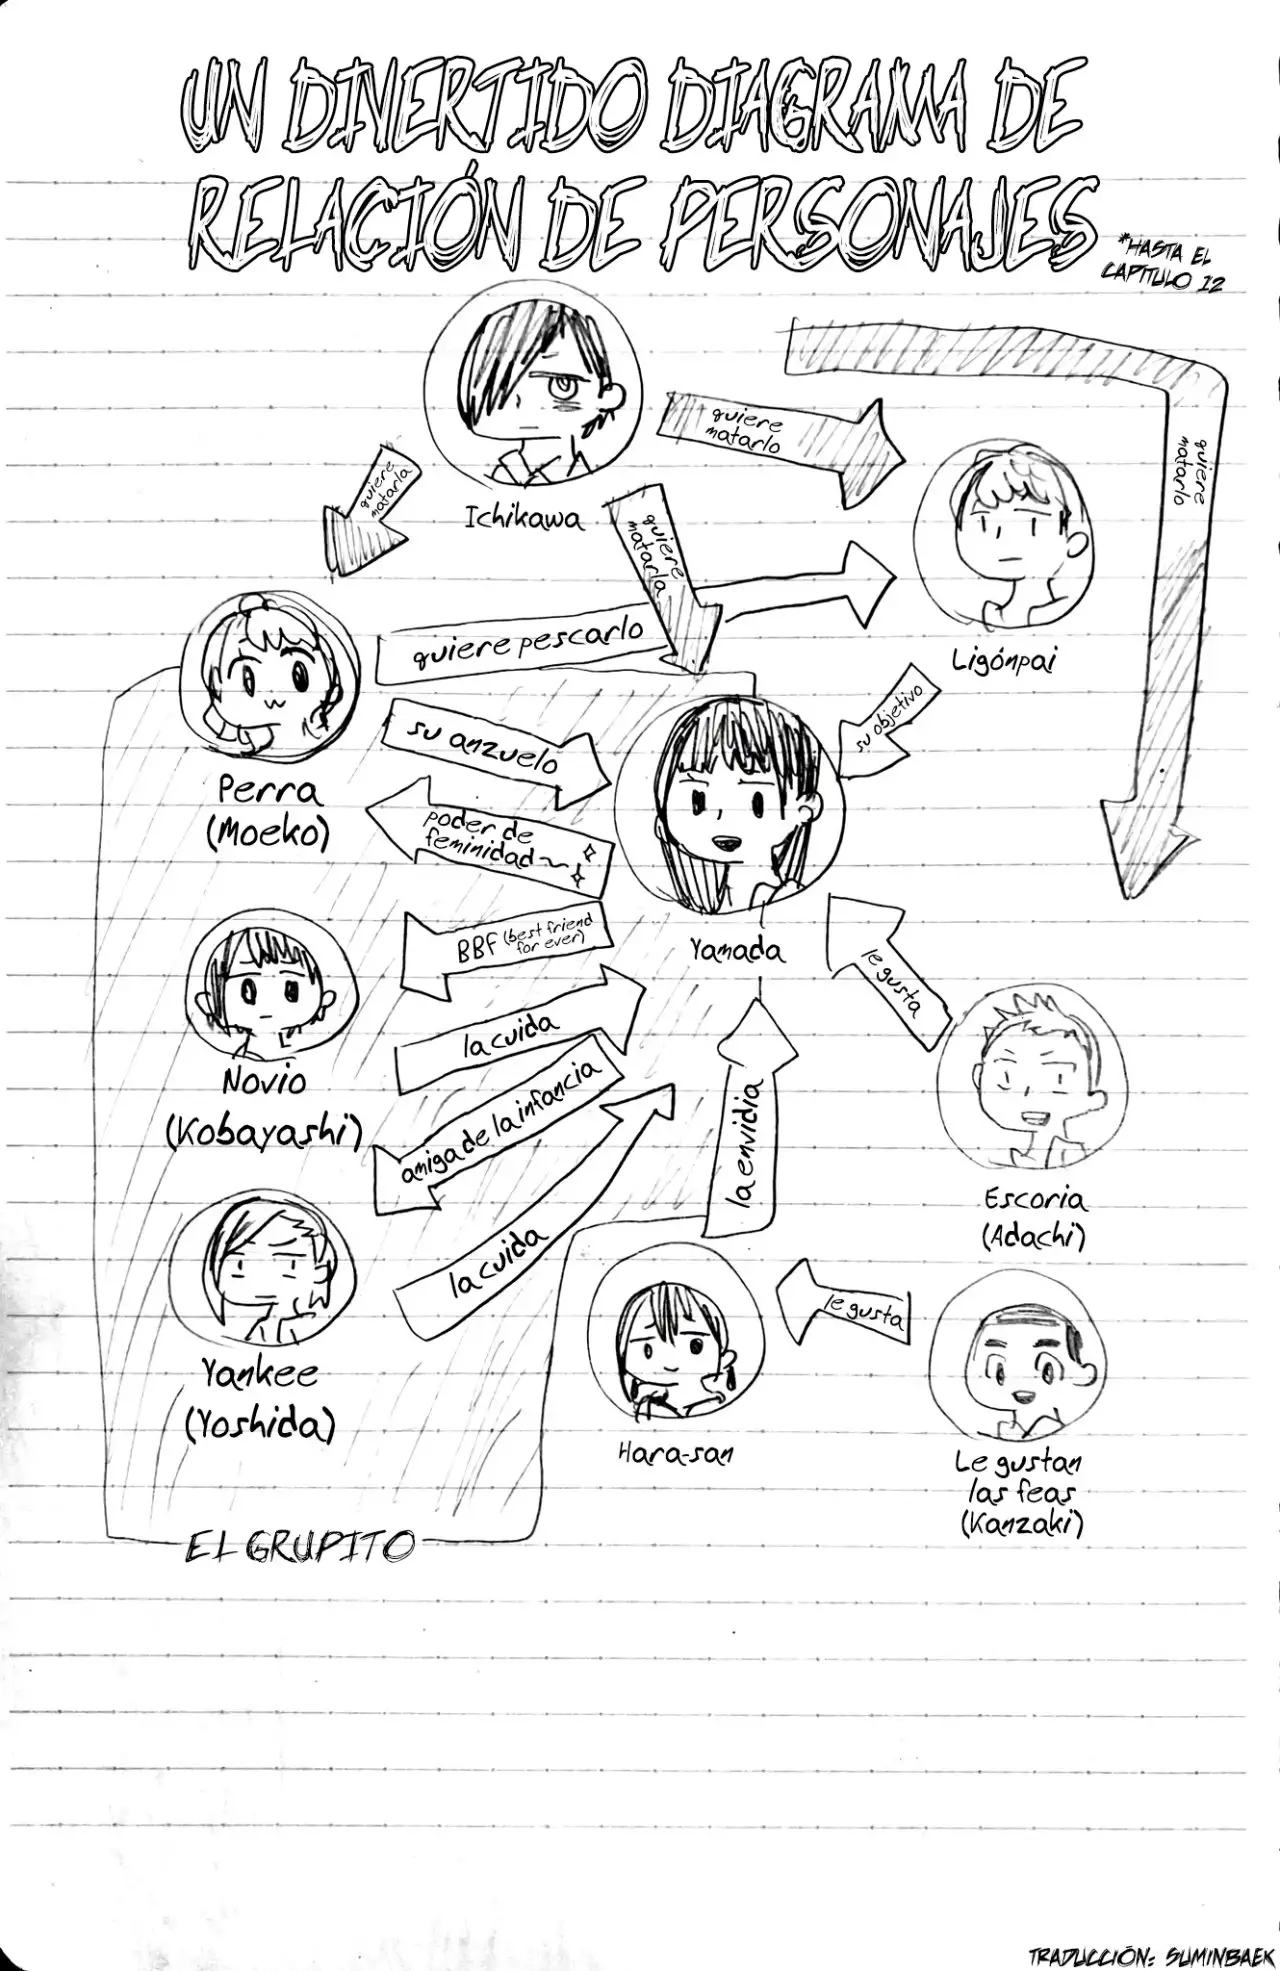 UN DIVERTIDO DIAGRAMA DE
RELACIÓN DE PERSONAJES
*HASTA EL
CAPÍTULO 12
quiere
matarlo
quiere
matarlo
quiere
matarla
Ichikawa
quiere
matarla
quiere pescarlo
Ligónpai
su objetivo
su anzuelo
Perra
(Moeko)
poder de
feminidad~
BBF (best friend
for ever)
Yamada
le gusta
la cuida
Novio
(Kobayashi)
amiga de la infancia
la envidia
Escoria
(Adachi)
la cuida
le gusta
Yankee
(Yoshida)
Hara-san
Le gustan
las feas
(Kanzaki)
EL GRUPITO
TRADUCCIÓN: SUMINBAEK